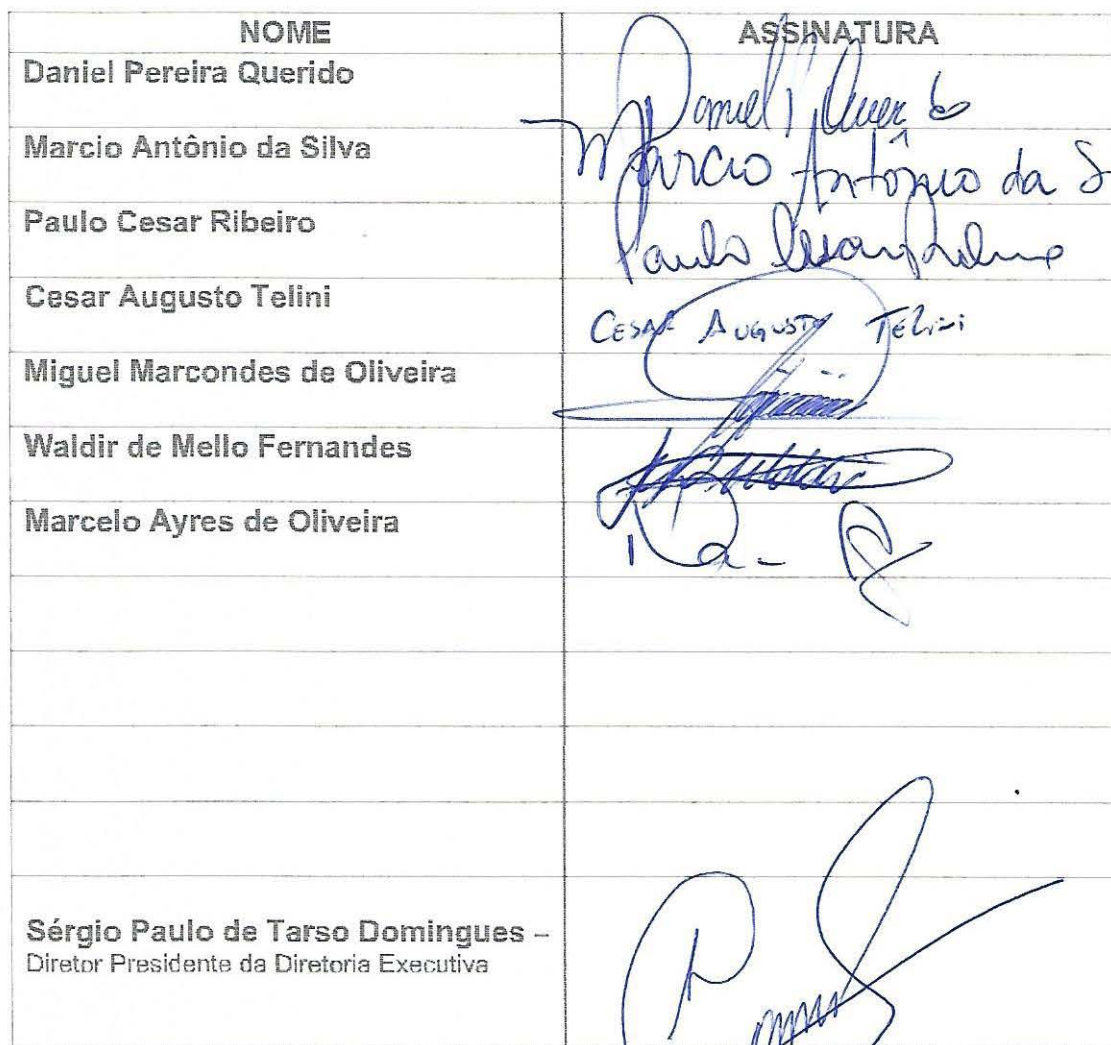 NOME ASSINATURA
Daniel Pereira Querido Daniel
Marcio Antônio da Silva Marcio Antônio da S
Paulo Cesar Ribeiro Paulo Cesar
Cesar Augusto Telini CESAR AUGUSTO TELINI
Miguel Marcondes de Oliveira
Waldir de Mello Fernandes
Marcelo Ayres de Oliveira
Sérgio Paulo de Tarso Domingues –
Diretor Presidente da Diretoria Executiva